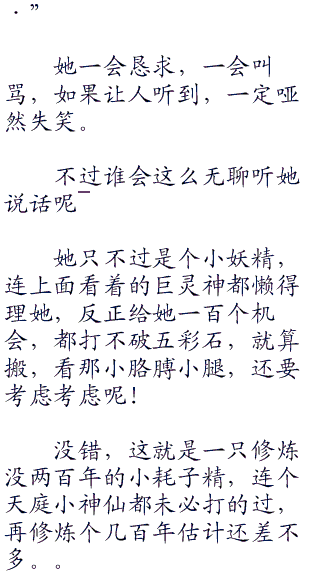 ．”
她一会恳求，一会叫
骂，如果让人听到，一定哑
然失笑。
不过谁会这么无聊听她
说话呢
她只不过是个小妖精，
连上面看着的巨灵神都懒得
理她，反正给她一百个机
会，都打不破五彩石，就算
搬，看那小胳膊小腿，还要
考虑考虑呢！
没错，这就是一只修炼
没两百年的小耗子精，连个
天庭小神仙都未必打的过，
再修炼个几百年估计还差不
多。。